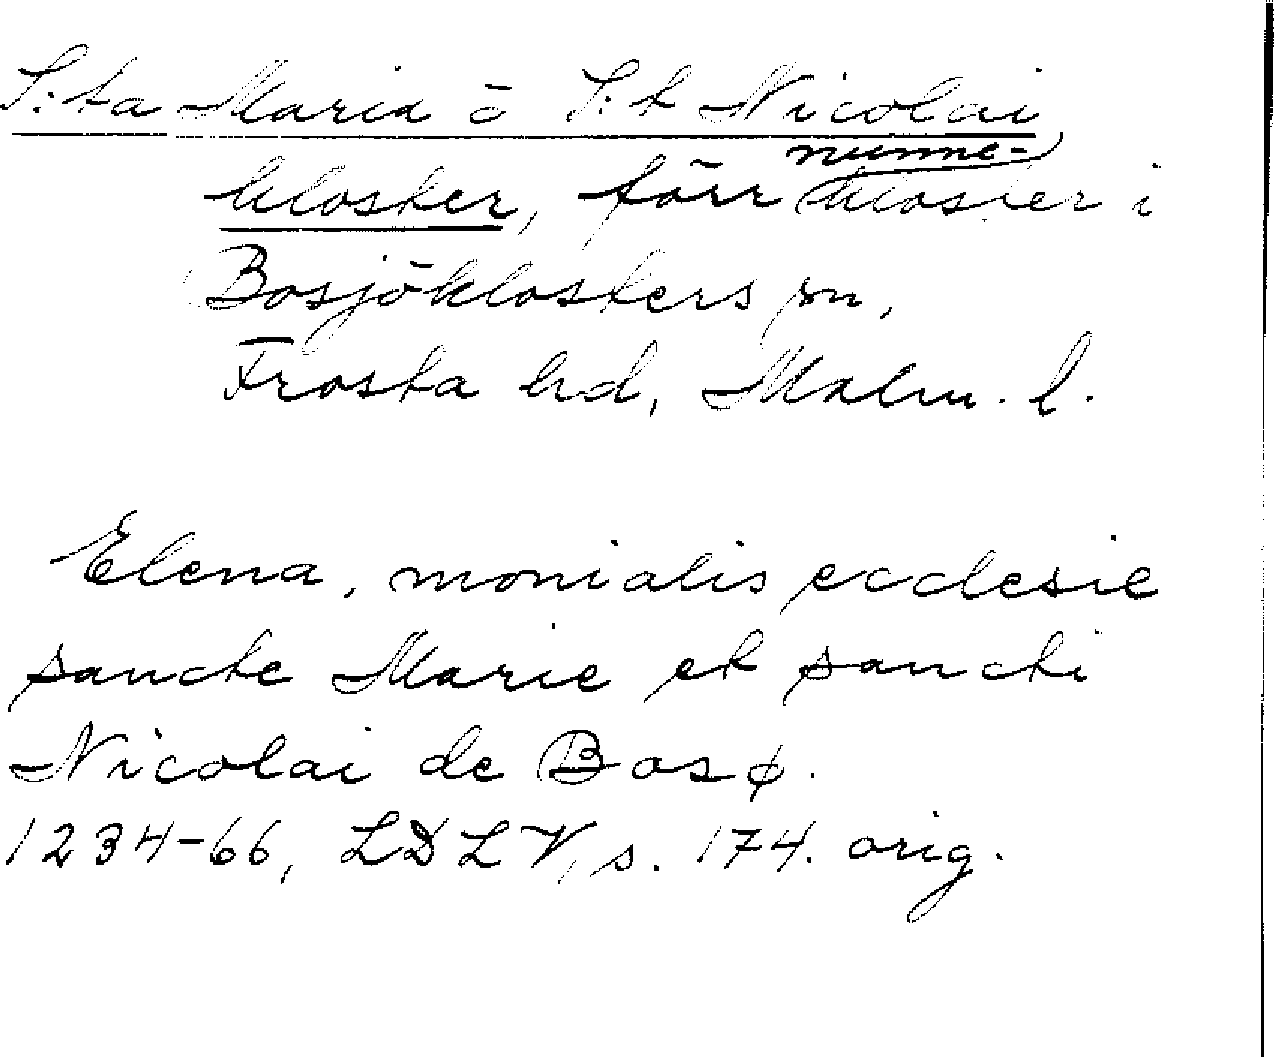 S:ta Maria o S:t Nicolai
kloster, förr nunne-kloster i
Bosjöklosters sn,
Frosta hd, Malm. l.
Elena, monialis ecclesie
sancte Marie et sancti
Nicolai de Bosø.
1234-66, LDLV, s. 174. orig.